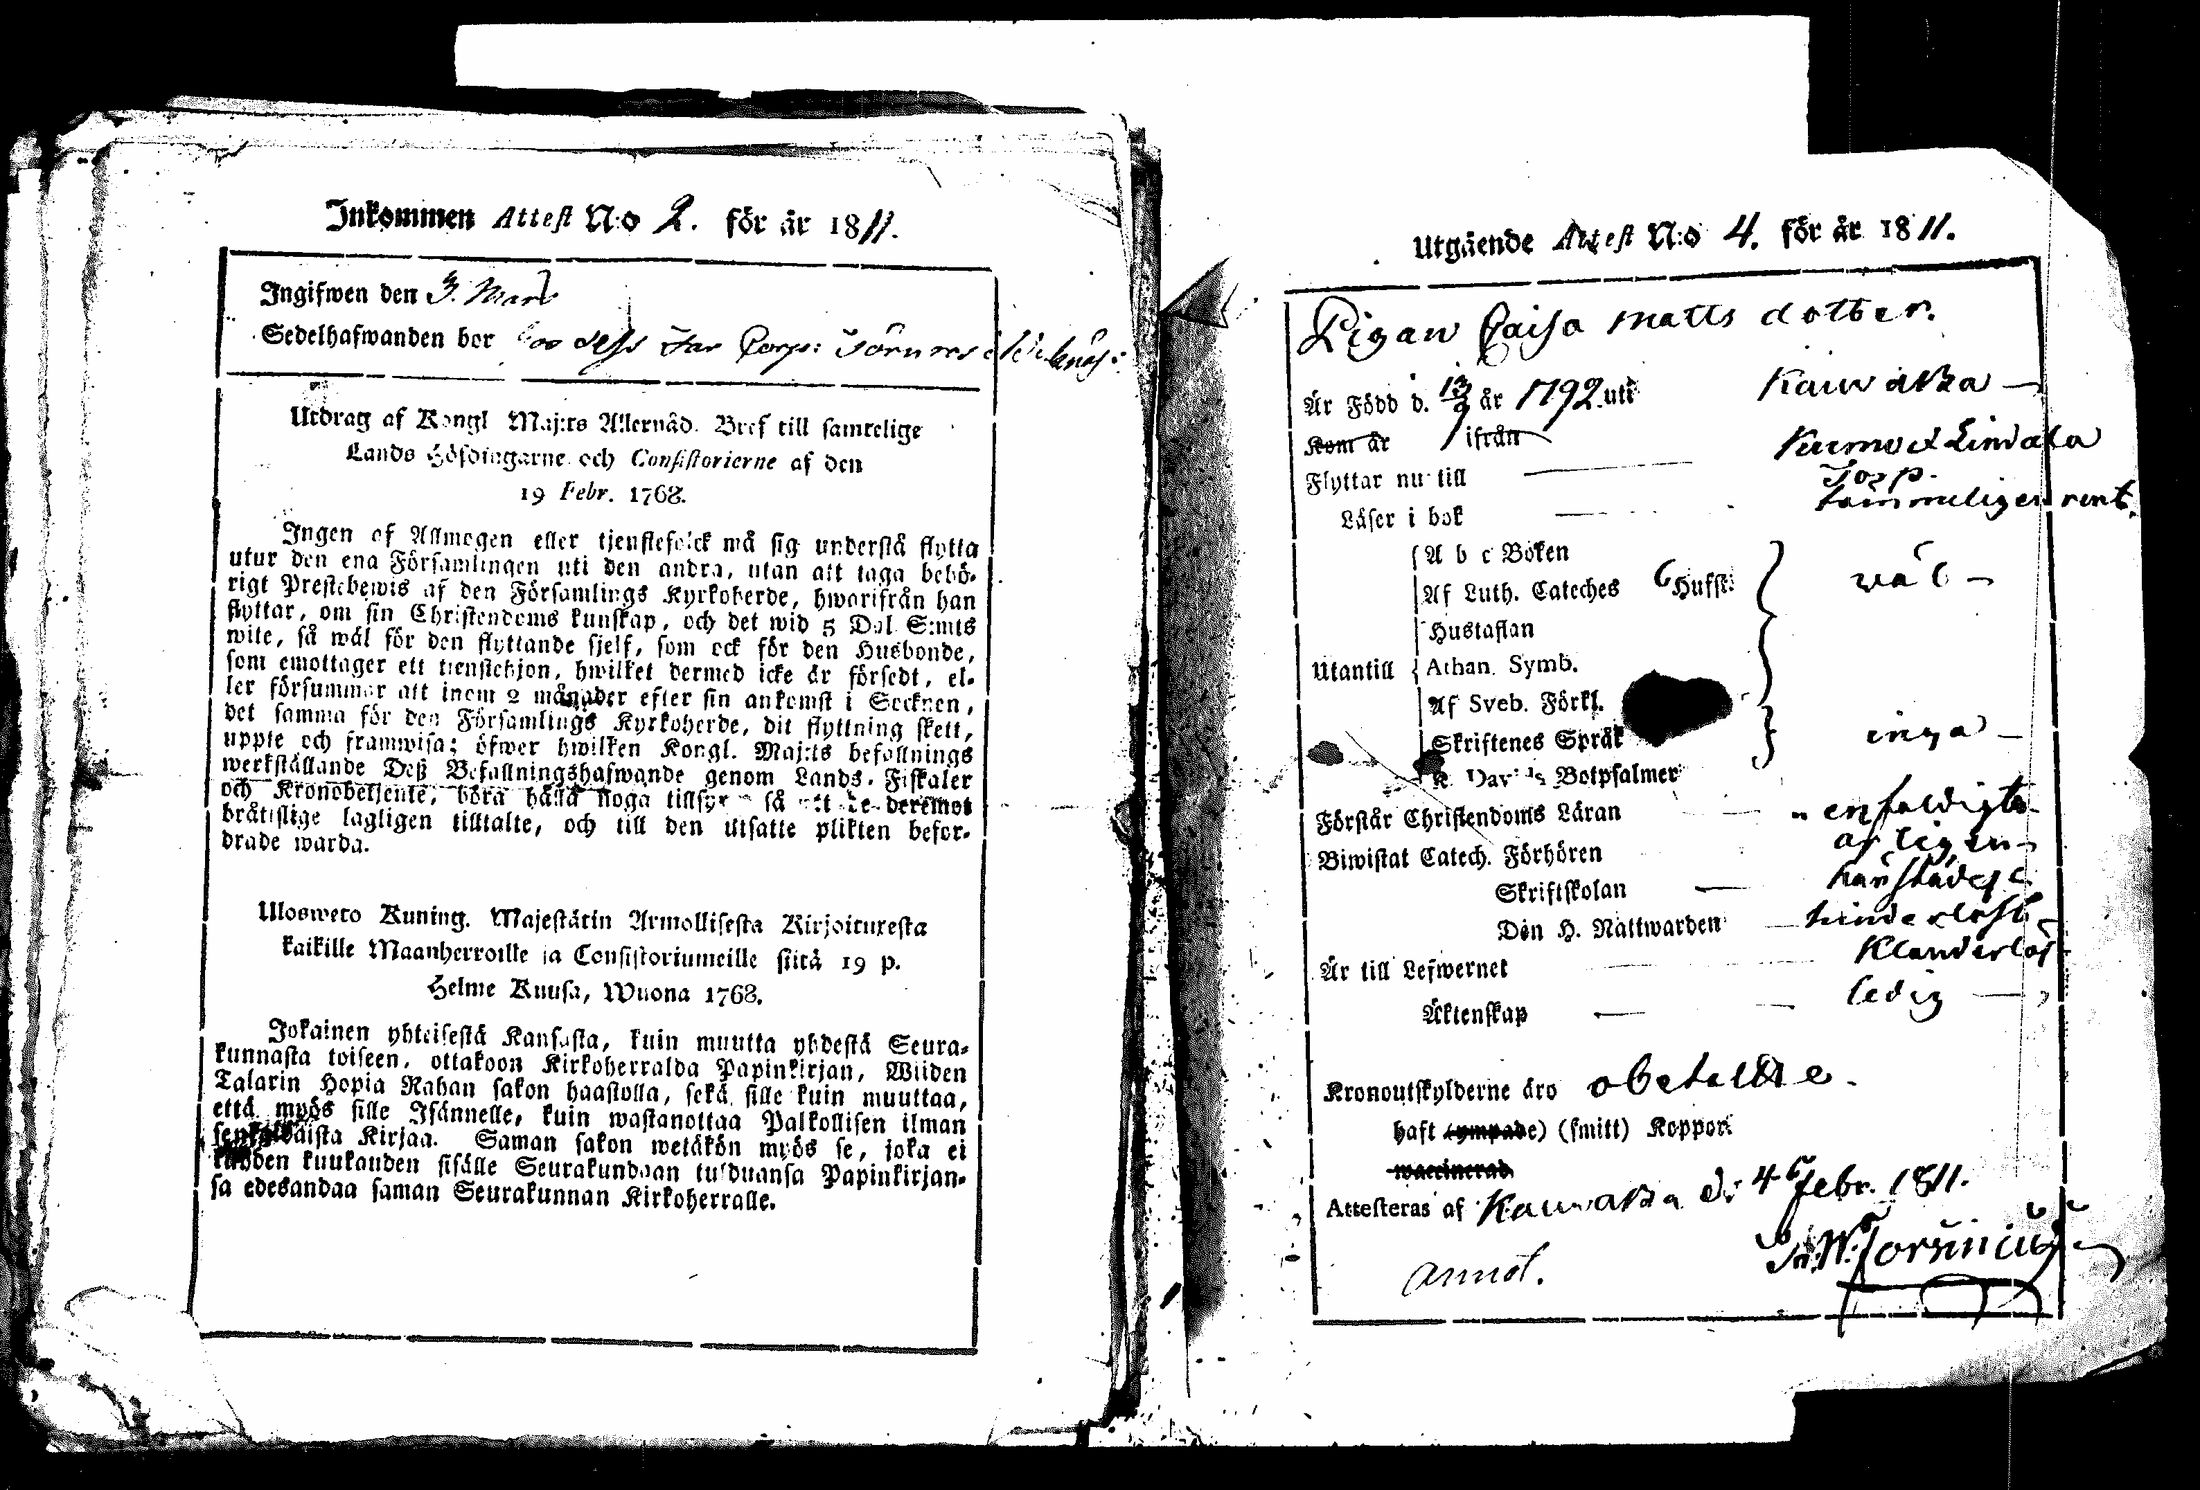 Inkommen Attest N:o 2. för år 1811.
Ingifwen den 3. Mars
Sedelhafwanden bor hos dess Far Corp: Törn
Utdrag af Kongl Maj:ts Allernåd. Bref till samtelige
Lands Höfdingarne och Consistorierne af den
19 Febr. 1768.
Ingen af Allmogen eller tjenstefolck må sig understå flytta
utur den ena Församlingen uti den andra, utan att taga behö-
rigt Prestebewis af den Församlings Kyrkoherde, hworifrån han
flyttar, om sin Christendoms kunskap, och det wid 5 Dal S:mts
wite, så wäl för den flyttande sjelf, som ock för den Husbonde,
som emottager ett tienstehjon, hwilket dermed icke är försedt, el-
ler försummar att inom 2 månader efter sin ankomst i Socknen,
det samma för den Församlings Kyrkoherde, dit flyttning skett,
uppte och framwisa; öfwer hwilken Kongl. Maj:ts befallnings
werkställande Deß Befallningshafwande genom Lands-Fiskaler
och Kronobetjente, böra hålla noga tillsyn så att de deremot
bråtislige lagligen tilltalte, och till den utsatte plikten befor-
drade warda.
Ulosweto Kuning. Majestätin Armollisesta Kirjoituxesta
kaikille Maanherroille ja Consistoriumeille siitä 19 p.
Helme Kuusa, Wuona 1768.
Jokainen yhteisestä Kansasta, kuin muutta yhdestä Seura-
kunnasta toiseen, ottakoon Kirkoherralda Papinkirjan, Wiiden
Talarin Hopia Rahan sakon haastolla, sekä sille kuin muuttaa,
että myös sille Isännelle, kuin wastanottaa Palkollisen ilman
senkaldaista Kirjaa. Saman sakon wetäkön myös se, joka ei
kahden kuukauden sisälle Seurakundaan tulduansa Papinkirjan-
sa edesandaa saman Seurakunnan Kirkoherralle.
Utgående Attest N:o 4. för år 1811.
Pigan Caisa Matts dotter.
Är Född d. 13/9 år 1792 uti Kauwatza
Kom år ifrån
Flyttar nu till Kumo et Lindala
Torp.
Läser i bok tämmeligen rent.
A b c Boken
Af Luth. Cateches 6 Hufst: wäl
Hustaflan
Utantill Athan. Symb.
Af Sveb. Förkl.
Skriftenes Språk inga
K. Davids Botpsalmer
Förstår Christendoms Läran enfaldigt
Biwistat Catech. Förhören årligen
Skriftskolan härstädes
Den H. Nattwarden hinderlöst
Är till Lefwernet Klanderlös
Äktenskap ledig
Kronoutskylderne äro obetalde.
haft (ympade) (smitt) Koppor
waccinerad
Attesteras af Kauwatza d: 4 Febr. 1811.
W: Forsinius
annot.